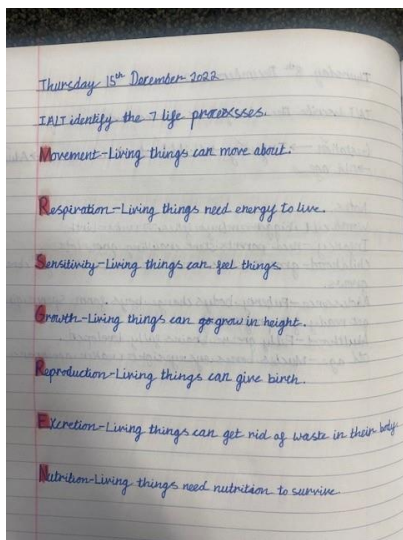 Thursday 15th December 2022
IALT identify the 7 life processses.
Movement-Living things can move about.
Respiration-Living things need energy to live.
Sensitivity-Living things can feel things.
Growth-Living things can go grow in height.
Reproduction-Living things can give birth.
Excretion-Living things can get rid of waste in their body.
Nutrition-Living things need nutrition to survive.